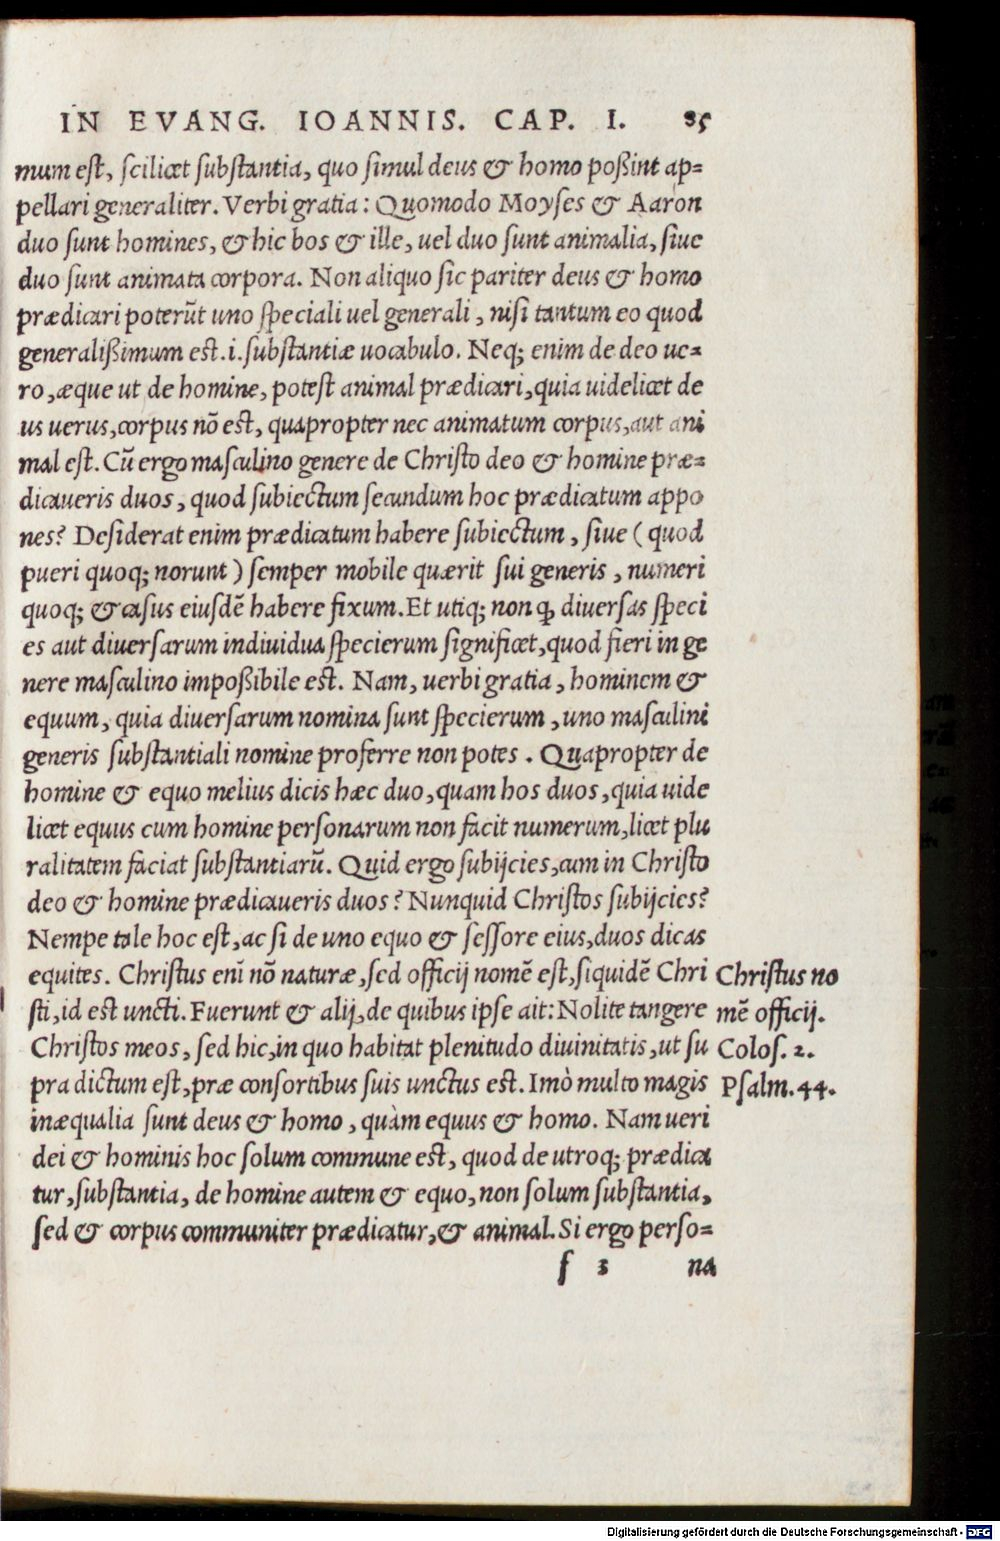 IN EVANG. IOANNIS. CAP. I. 85
mum est, scilicet substantia, quo simul deus & homo poßint ap=
pellari generaliter. Verbi gratia: Quomodo Moyses & Aaron
duo sunt homines, & hic bos & ille, uel duo sunt animalia, siue
duo sunt animata corpora. Non aliquo sic pariter deus & homo
prædicari poterūt uno speciali uel generali, nisi tantum eo quod
generalißimum est .i. substantiæ uocabulo. Neq; enim de deo ue=
ro, æque ut de homine, potest animal prædicari, quia uidelicet de
us uerus, corpus nō est, quapropter nec animatum corpus, aut ani
mal est. Cū ergo masculino genere de Christo deo & homine præ=
dicaueris duos, quod subiectum secundum hoc prædicatum appo
nes? Desiderat enim prædicatum habere subiectum, siue (quod
pueri quoq; norunt) semper mobile quærit sui generis, numeri
quoq; & casus eiusdē habere fixum. Et utiq; non ꝙ diuersas speci
es aut diuersarum indiuidua specierum significet, quod fieri in ge
nere masculino impoßibile est. Nam, uerbi gratia, hominem &
equum, quia diuersarum nomina sunt specierum, uno masculini
generis substantiali nomine proferre non potes. Quapropter de
homine & equo melius dicis hæc duo, quam hos duos, quia uide
licet equus cum homine personarum non facit numerum, licet plu
ralitatem faciat substantiarū. Quid ergo subijcies, cum in Christo
deo & homine prædicaueris duos? Nunquid Christos subijcies?
Nempe tale hoc est, ac si de uno equo & sessore eius, duos dicas
equites. Christus enī nō naturæ, sed officij nomē est, siquidē Chri
sti, id est uncti. Fuerunt & alij, de quibus ipse ait: Nolite tangere
Christos meos, sed hic, in quo habitat plenitudo diuinitatis, ut su
pra dictum est, præ consortibus suis unctus est. Imò multo magis
inæqualia sunt deus & homo, quàm equus & homo. Nam ueri
dei & hominis hoc solum commune est, quod de utroq; prædica
tur, substantia, de homine autem & equo, non solum substantia,
sed & corpus communiter prædicatur, & animal. Si ergo perso=
f 3 na
Christus no
mē officij.
Colos. 2.
Psalm. 44.
Digitalisierung gefördert durch die Deutsche Forschungsgemeinschaft - DFG